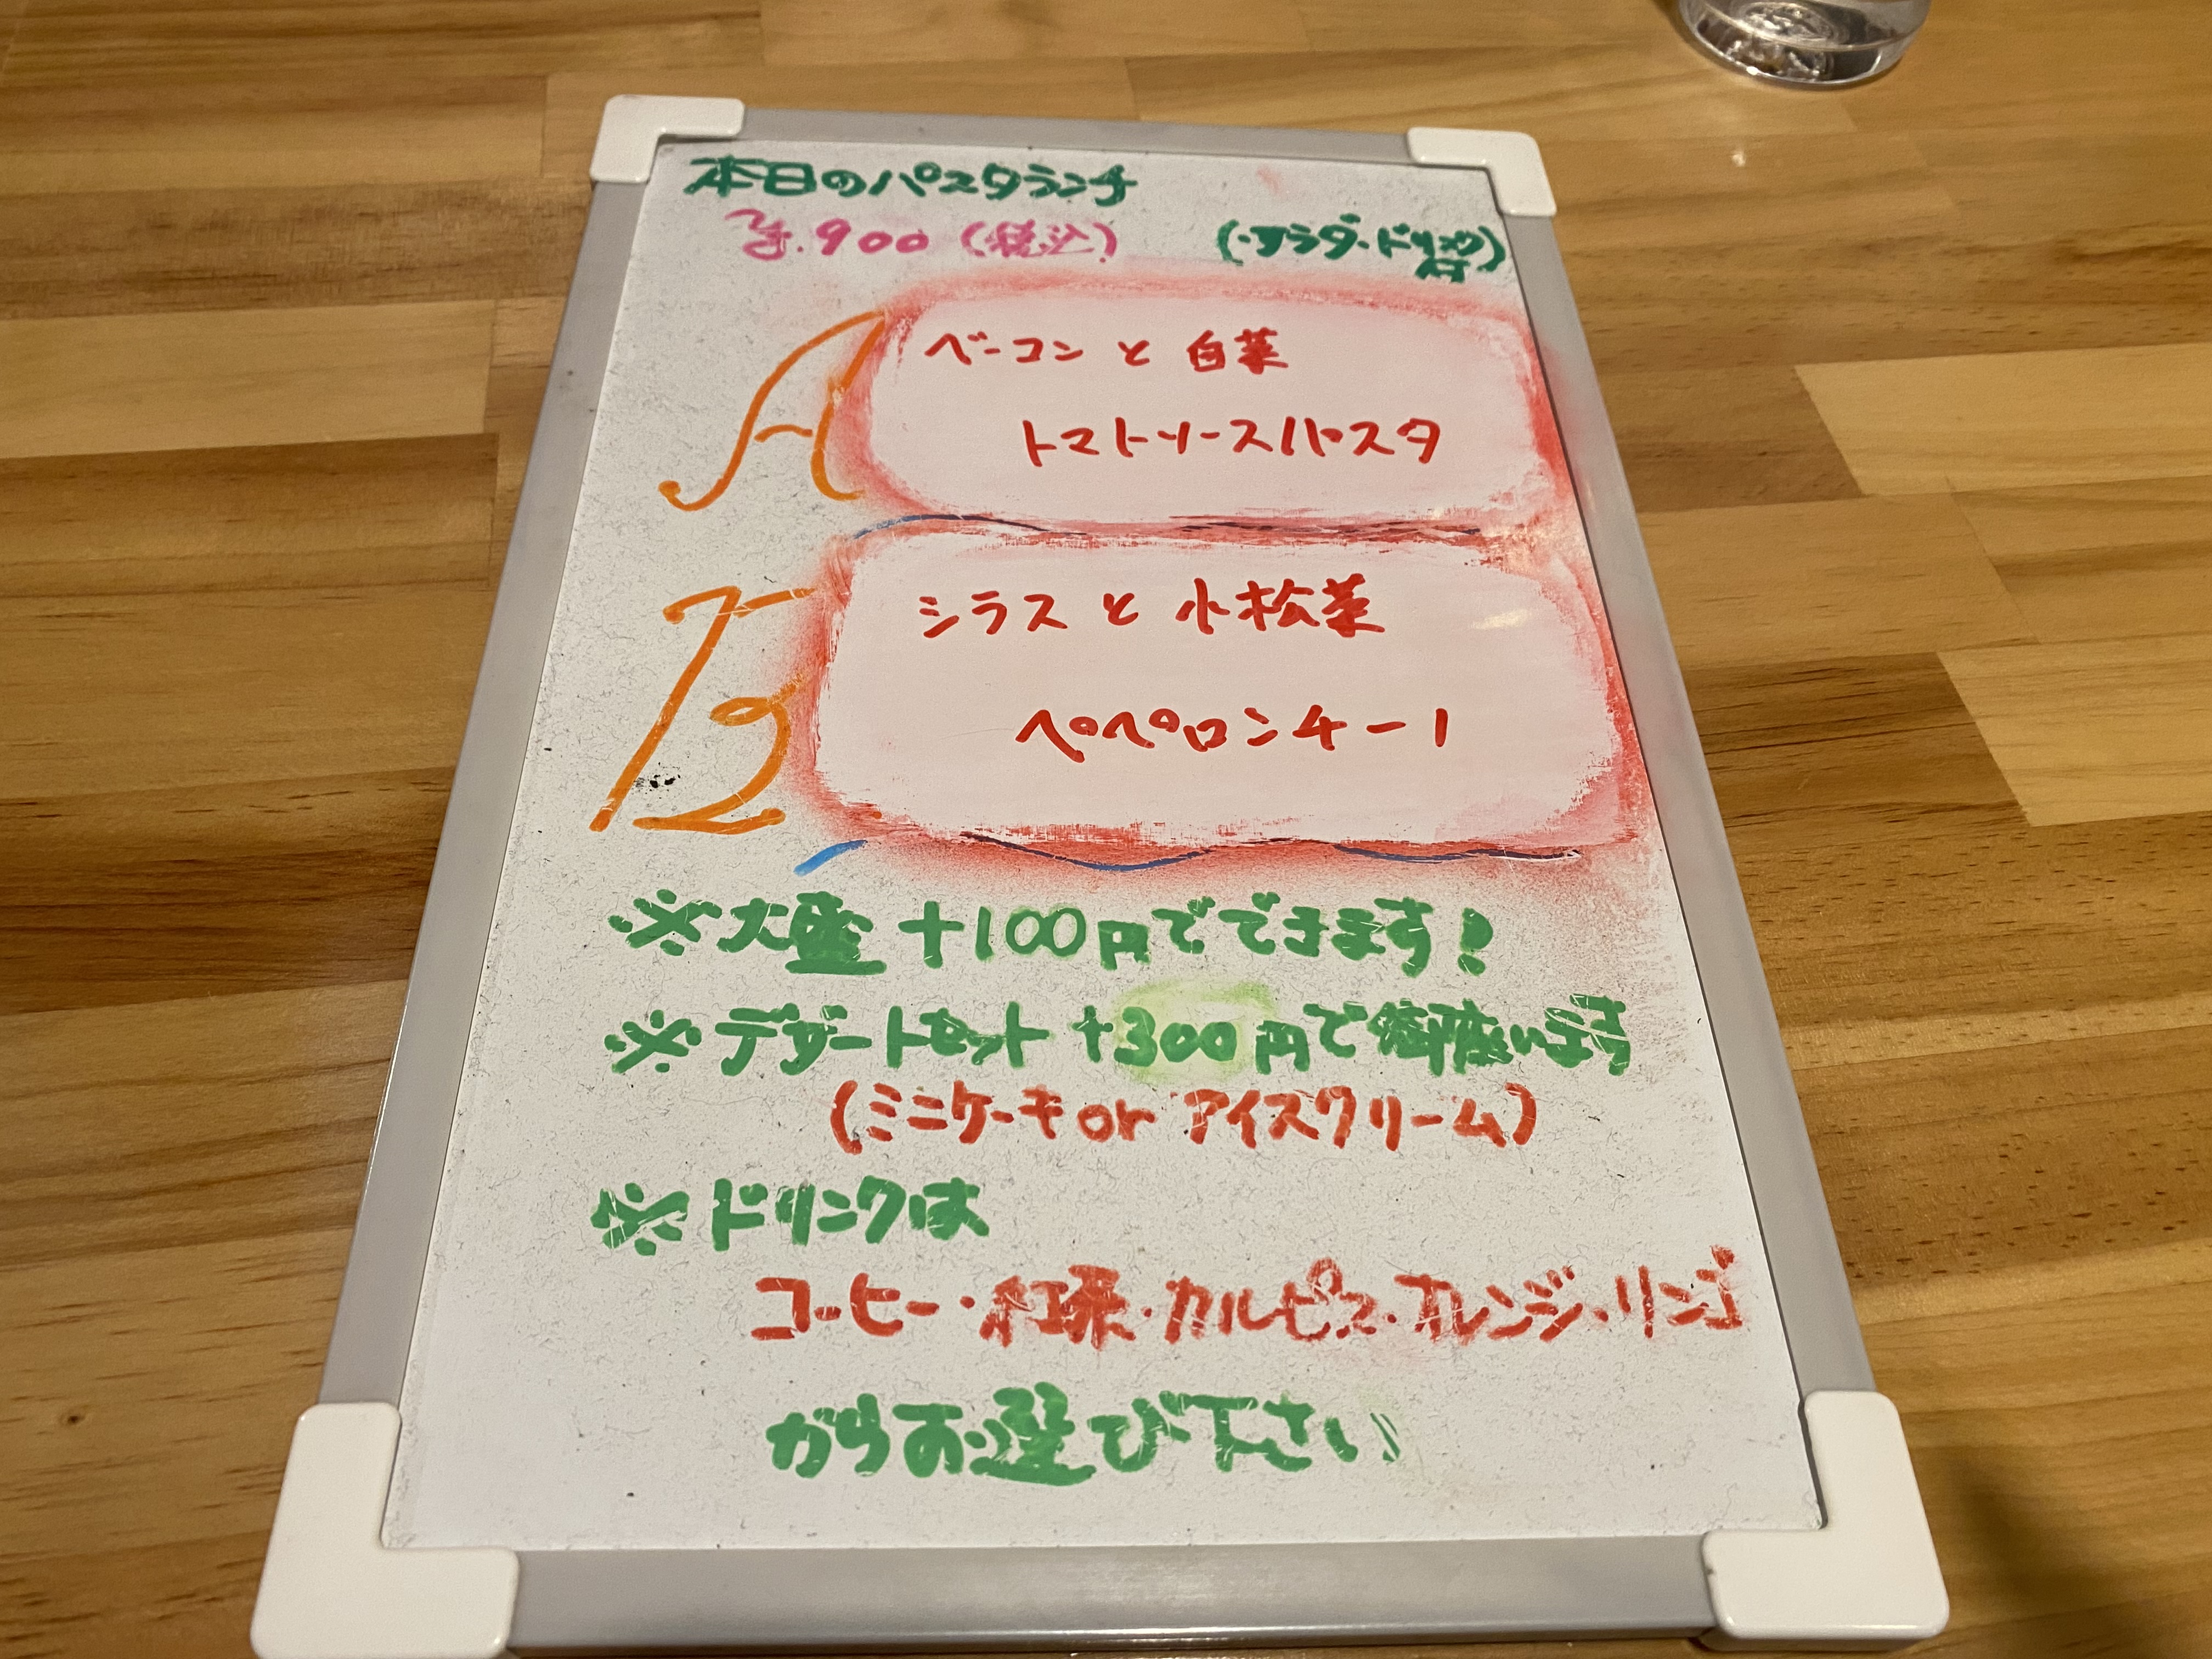 本日のパスタランチ
¥.900 (税込) (・サラダ・ドリンク付)
A
ベーコンと白菜
トマトソースパスタ
B
シラスと小松菜
ペペロンチーノ
※大盛+100円でできます!
※デザートセット+300円で御座います
(ミニケーキor アイスクリーム)
※ドリンクは
コーヒー・紅茶・カルピス・オレンジ・リンゴ
からお選び下さい